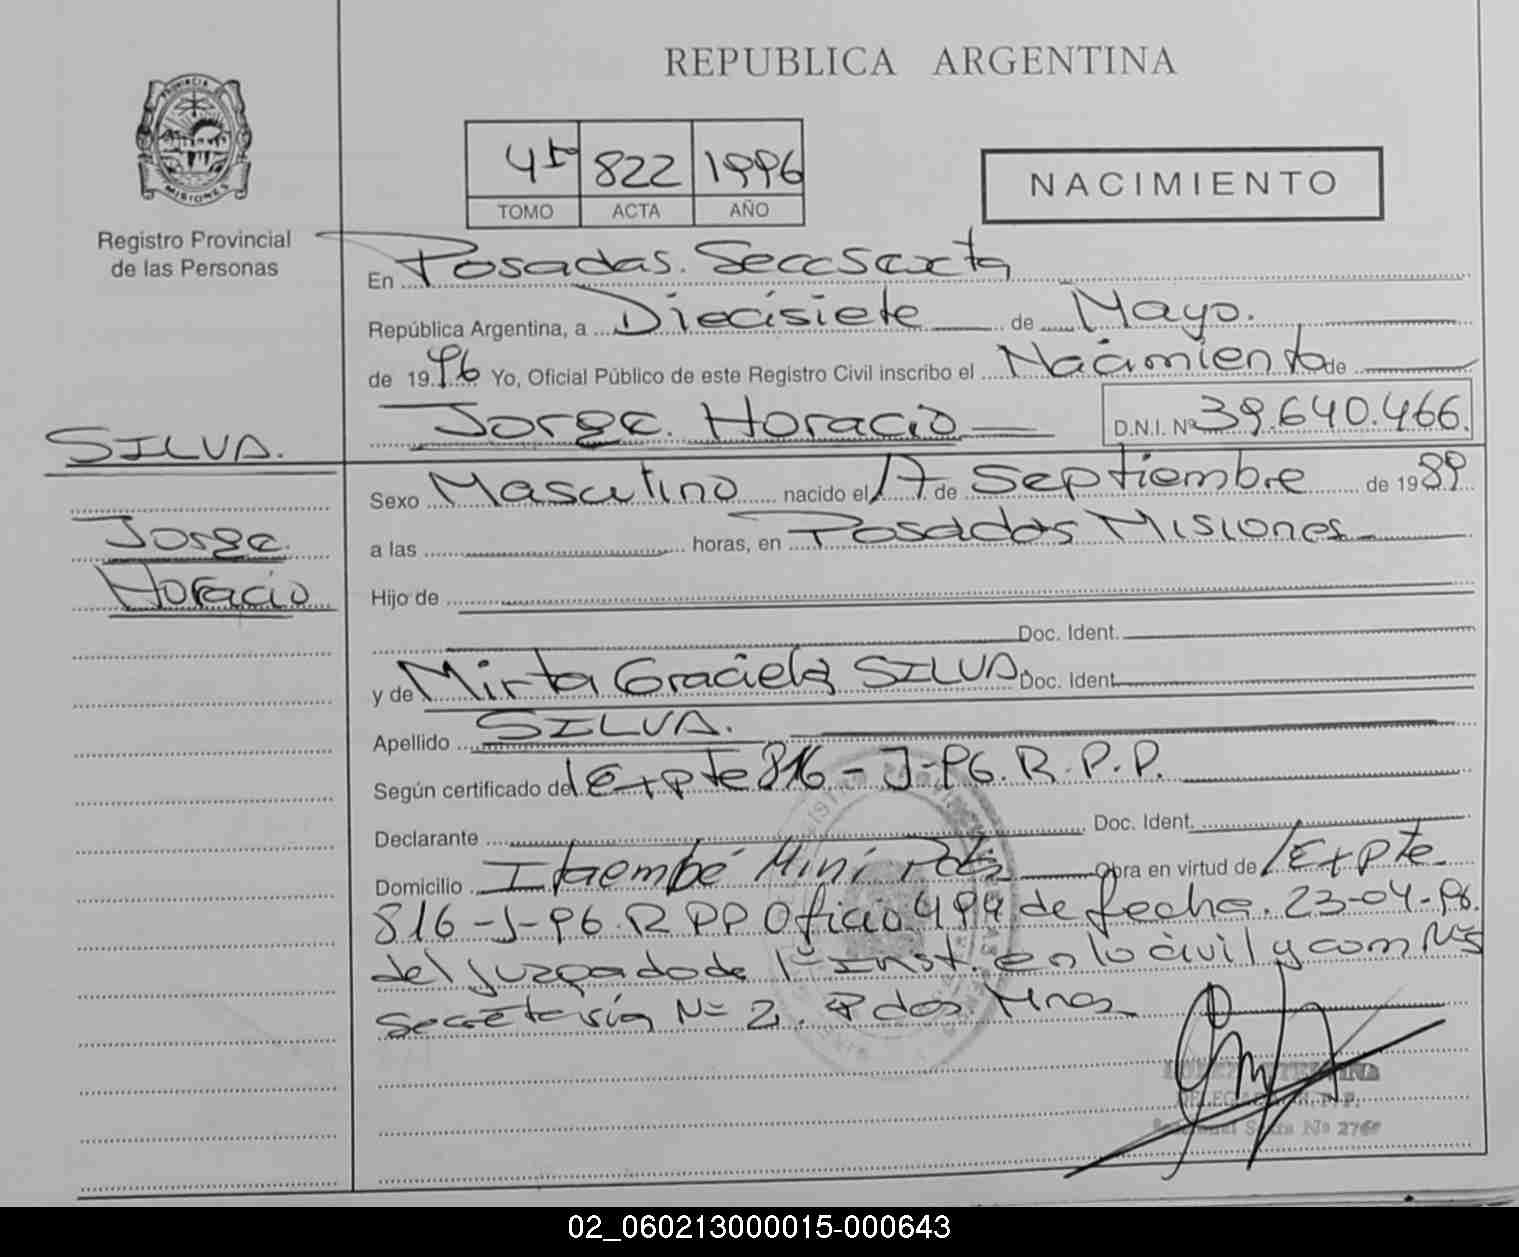 REPUBLICA ARGENTINA
PROVINCIA DE
MISIONES
Registro Provincial
de las Personas
4to 822 1996
TOMO ACTA AÑO
NACIMIENTO
En Posadas. Secc Sexta
República Argentina, a Diecisiete de Mayo.
de 1996 Yo, Oficial Público de este Registro Civil inscribo el Nacimiento de
Jorge Horacio D.N.I. Nº 39.640.466.
SILVA.
Jorge
Horacio
Sexo Masculino nacido el 17 de Septiembre de 1989
a las horas, en Posadas Misiones
Hijo de
Doc. Ident.
y de Mirta Graciela SILVA. Doc. Ident.
Apellido SILVA.
Según certificado del Expte 816-J-96. R.P.P.
Declarante Doc. Ident.
Domicilio Itaembé Miní Pdas Obra en virtud de Expte
816-J-96. R P P Oficio 494 de fecha. 23-04-96.
del juzgado de 1ª Inst. en lo civil y com Nº5
Secretaría Nº 2. Pdas Mnes
DELEGADA R.P.P.
Seccional Sexta Nº
02_060213000015-000643